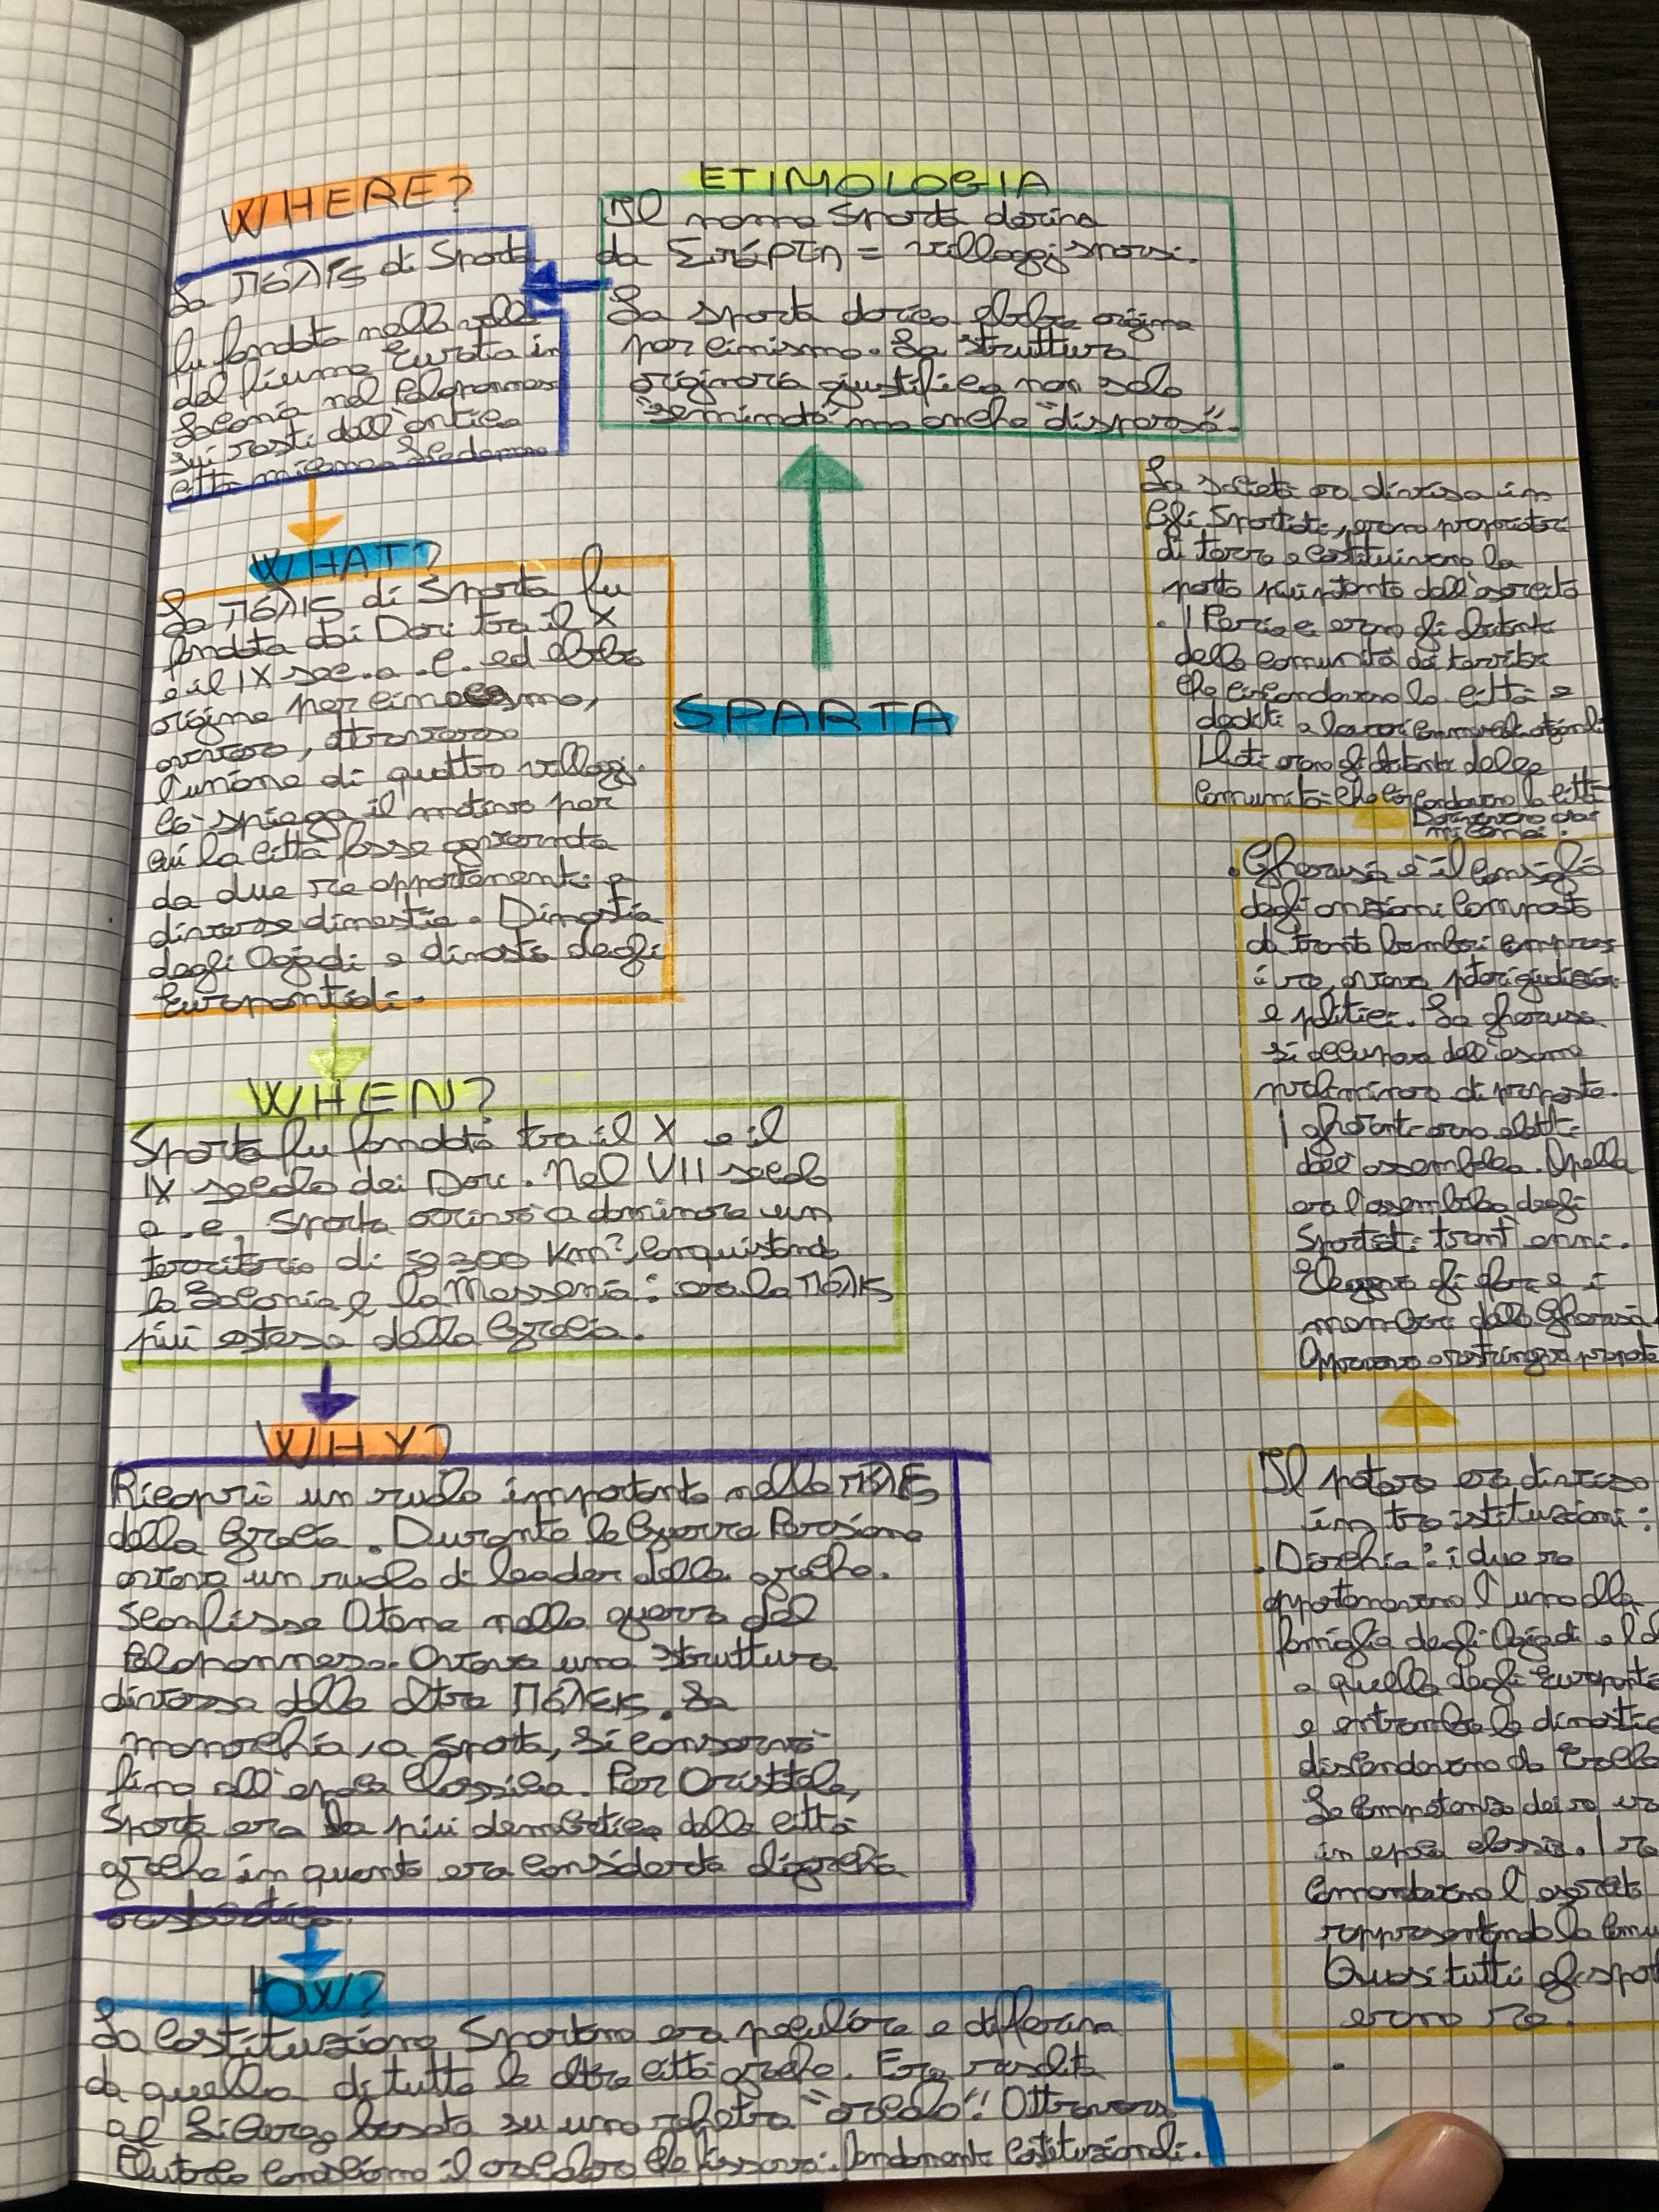 ETIMOLOGIA
Il nome Sparta deriva
da Σπάρτη = villaggi sparsi.
La sparta dorica ebbe origine
per cinismo. La struttura
originaria giustifica non solo
"seminata" ma anche "dispersa".
WHERE?
La πόλις di Sparta
fu fondata nella valle
del fiume Eurota in
Laconia nel Peloponneso
sui resti dell'antica
città micenea
WHAT?
La πόλις di Sparta fu
fondata dai Dori tra il X
e il IX sec. a.C. ed ebbe
origine per
ovvero, attraverso
l'unione di quattro villaggi.
Ciò spiega il motivo per
cui la città fosse governata
da due re appartenenti a
diverse dinastie. Dinastia
degli Agiadi e dinastia degli
Europontidi.
SPARTA
WHEN?
Sparta fu fondata tra il X e il
IX secolo dei Dori. Nel VII secolo
a.c. Sparta arrivò a dominare un
territorio di Km², conquistando
la Laconia e la Messenia: era la πόλις
più estesa della Grecia.
WHY?
Ricoprì un ruolo importante nelle
della Grecia. Durante le Guerre Persiane
aveva un ruolo di leader delle greche.
Sconfisse Atene nella guerra del
Peloponneso. Aveva una struttura
diversa dalle altre πόλεις. La
monarchia, a Sparta, si conservò
fino all'epoca classica. Per Aristotele,
Sparta era la più democratica delle città
greche in quanto era considerata
HOW?
La Costituzione Spartana era peculiare e differiva
da quella di tutte le altre città greche. Era
al basata su una rhetra "oracolo". Attraverso
Plutarco conosciamo il che fissava i fondamenti costituzionali.
La società era divisa in
Gli Spartiati, erano proprietari
di terre e costituivano la
parte più potente dell'esercito
. I Perieci erano gli abitanti
delle comunità dei territori
che circondavano la città e
dediti a lavori
Iloti erano gli abitanti delle
comunità che circondavano la città
Derivavano dai
micenei.
. Gherusia è il consiglio
degli anziani composto
da trenta membri compresi
i re, aveva poteri giudiziari
e politici. La gherusia
si occupava dell'esame
preliminare di proposte.
I gheronti erano eletti
dall'assemblea. Apella
era l'assemblea degli
Spartiati trent'enni.
Eleggeva gli efori e i
membri della Gherusia.
Approvava o proposte
Il potere era diviso
in tre istituzioni:
. Diarchia: i due re
appartenevano l'uno alla
famiglia degli Agiadi e l'
a quella degli
e entrambe le dinastie
discendevano da
Le competenze dei re
in epoca classica. I re
comandavano l'esercito
rappresentando la
Quasi tutti gli
erano re.